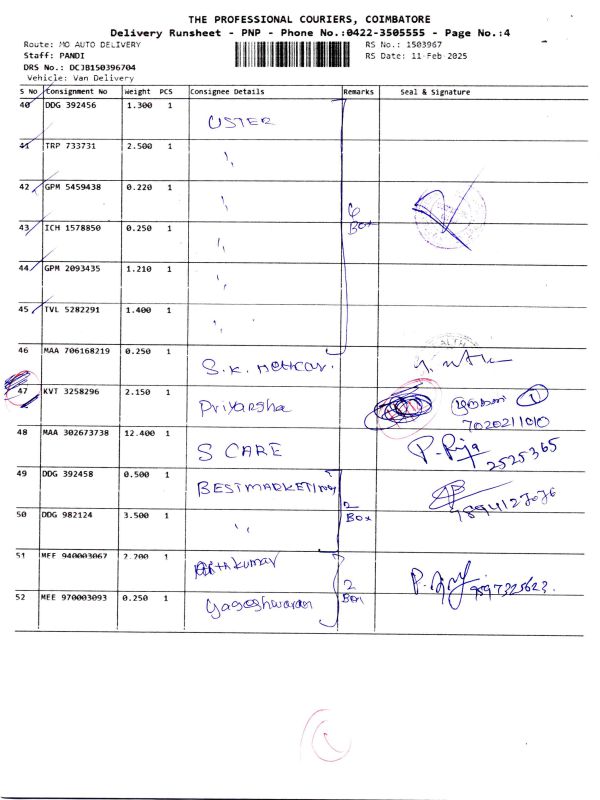 THE PROFESSIONAL COURIERS, COIMBATORE
Delivery Runsheet - PNP - Phone No.:0422-3505555 - Page No.:4
Route: MO AUTO DELIVERY RS No.: 1503967
Staff: PANDI RS Date: 11-Feb-2025
DRS No.: DCJB150396704
Vehicle: Van Delivery
S No Consignment No Weight PCS Consignee Details Remarks Seal & Signature
40 DDG 392456 1.300 1 USTER
41 TRP 733731 2.500 1 "
42 GPM 5459438 0.220 1 " 6
43 ICH 1578850 0.250 1 " Box
44 GPM 2093435 1.210 1 "
45 TVL 5282291 1.400 1 "
46 MAA 706168219 0.250 1 S.K.
47 KVT 3258296 2.150 1 Priyarsha 1
7020211010
48 MAA 302673738 12.400 1 S CARE P. Raja
2525365
49 DDG 392458 0.500 1 BESTMARKETING 2
50 DDG 982124 3.500 1 " Box
51 MEE 940003067 2.200 1 2
52 MEE 970003093 0.250 1 Yageshwaran Box